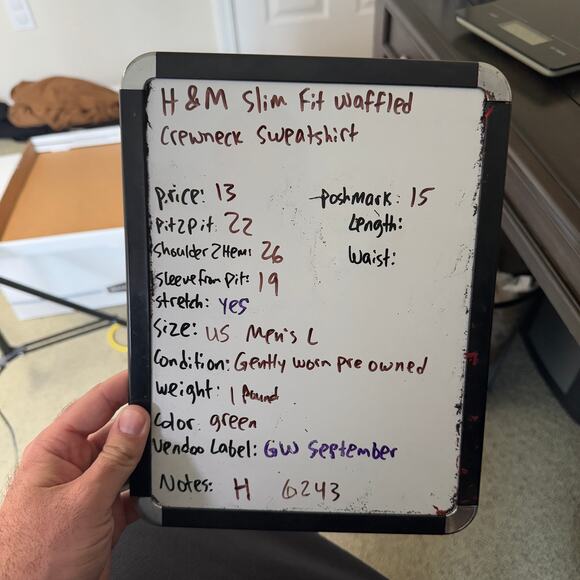 H & M Slim Fit Waffled
Crewneck Sweatshirt
price: 13
poshmark: 15
Pit2Pit: 22
Length:
Shoulder2Hem: 26
Waist:
Sleeve from Pit: 19
stretch: yes
Size: US Men's L
Condition: Gently worn pre owned
weight: 1 Pound
Color: green
Vendoo Label: GW September
Notes: H 6243